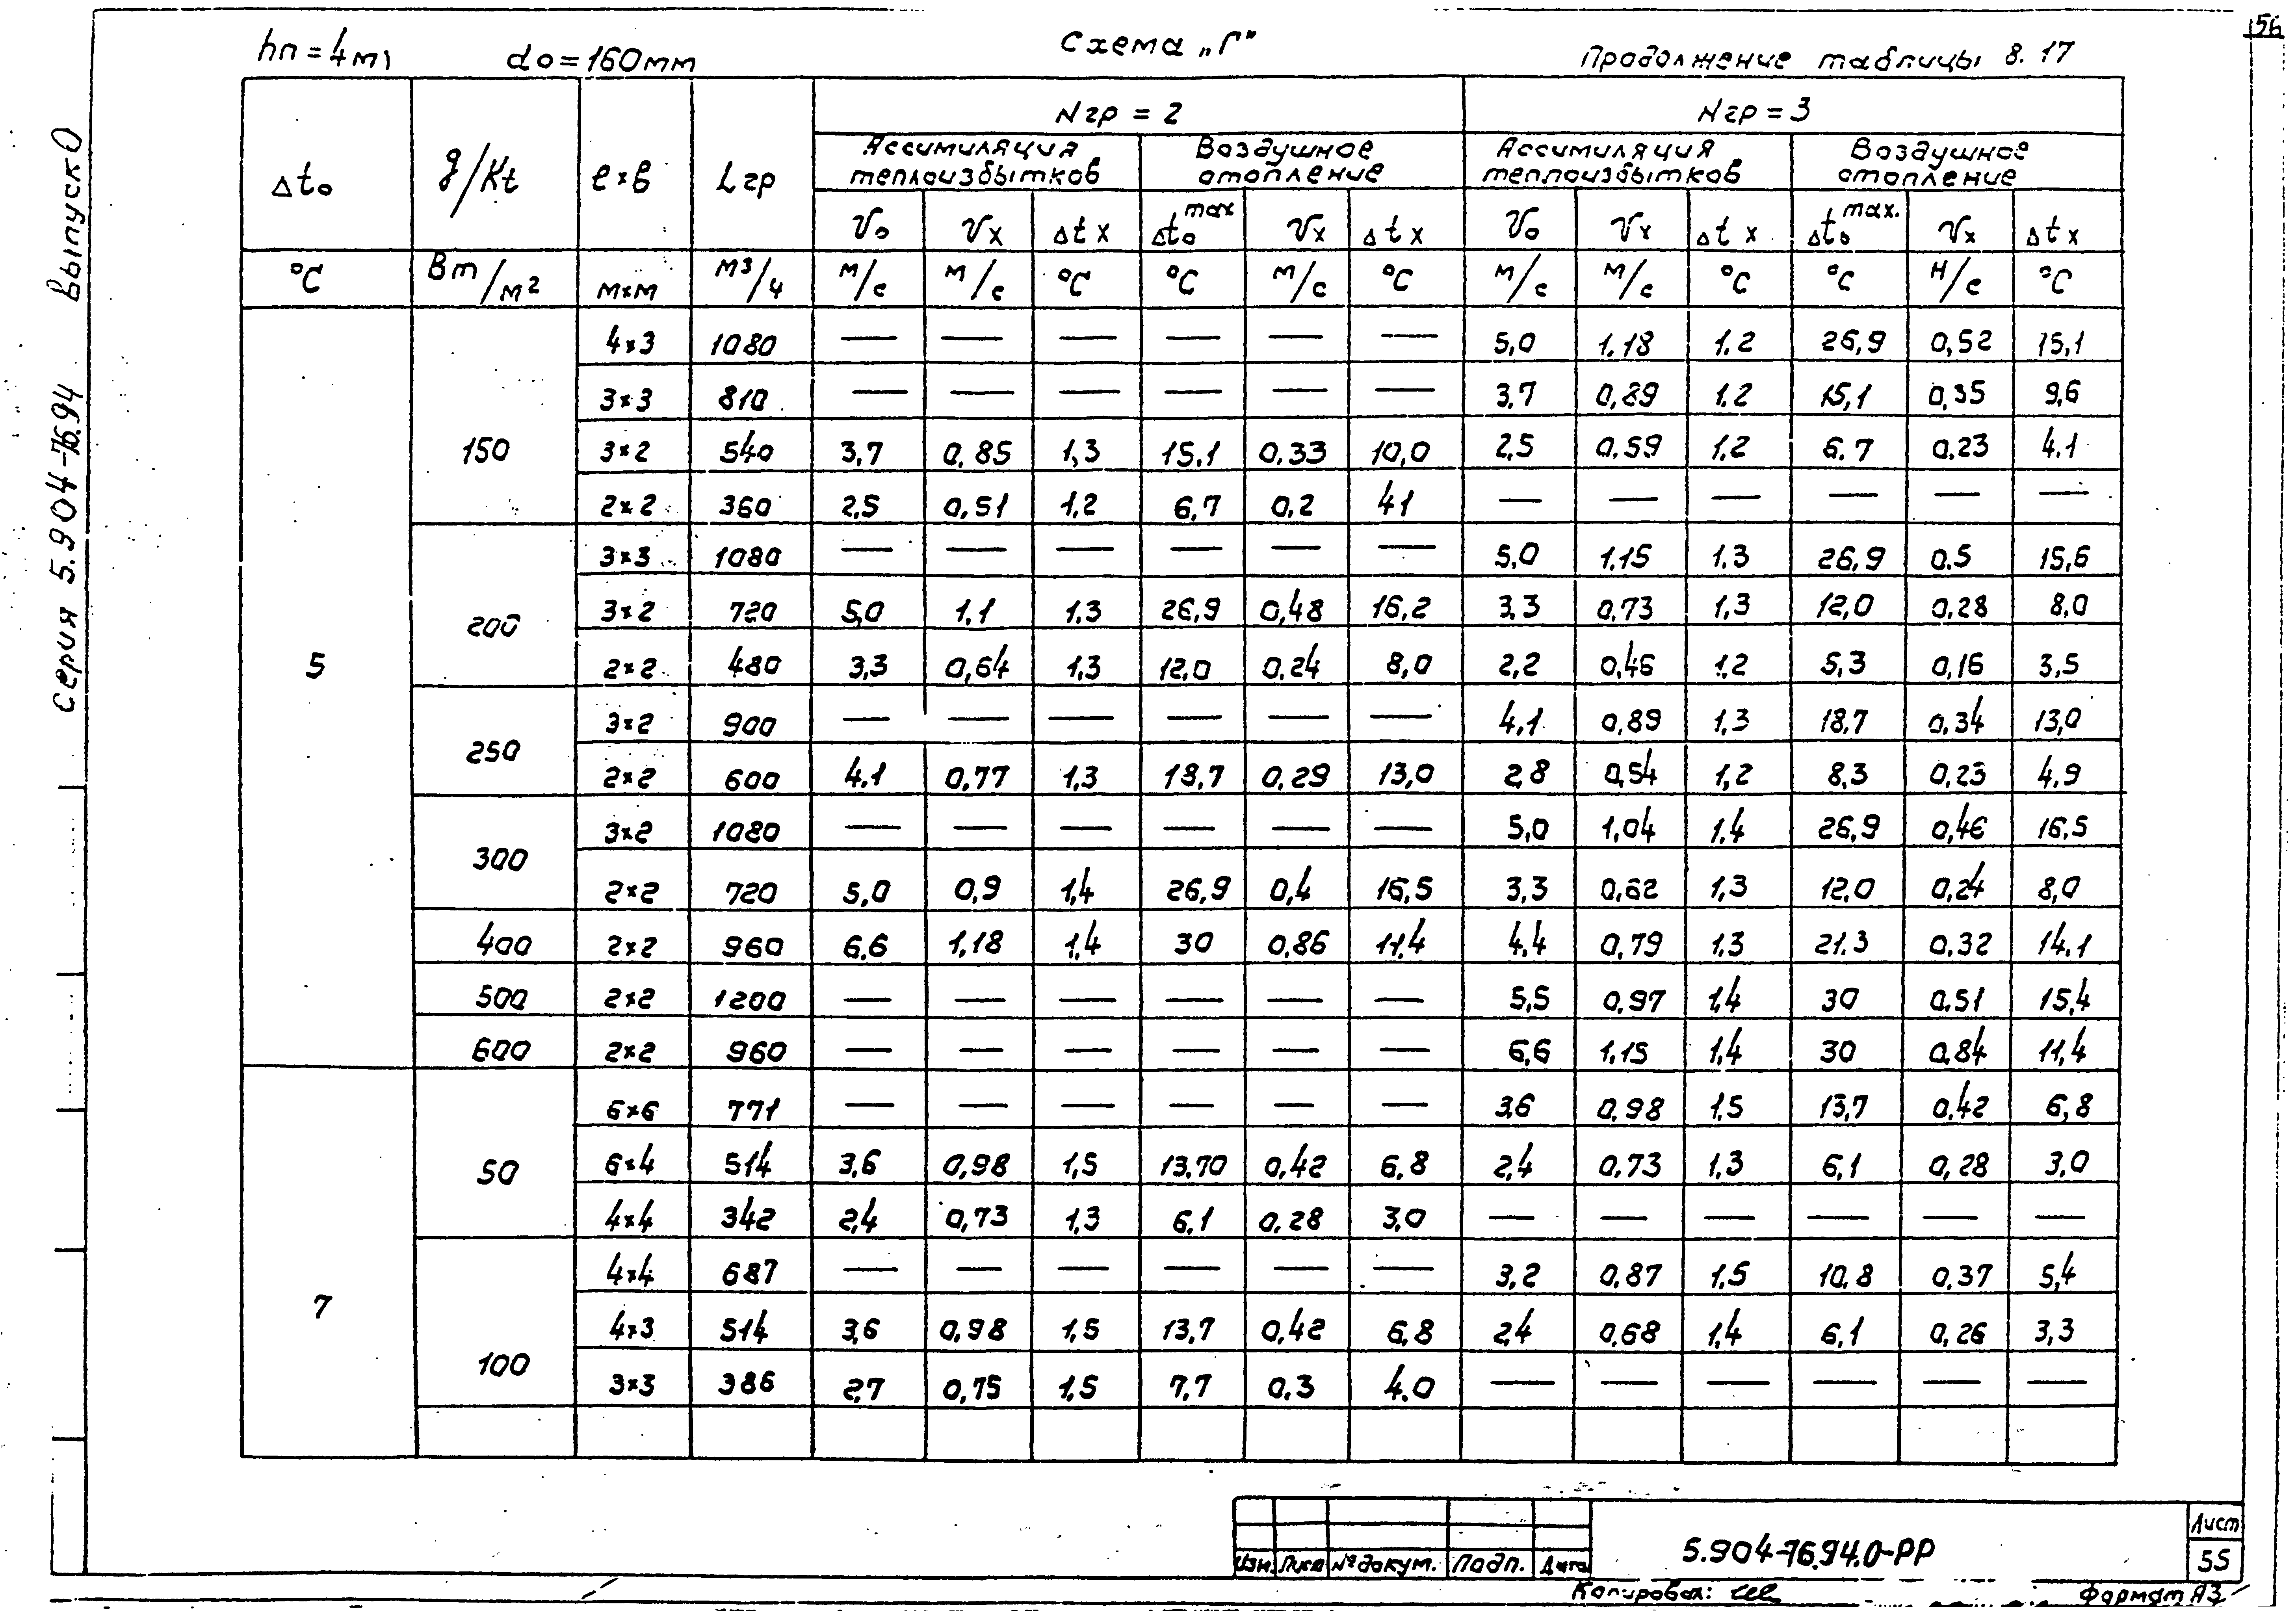 56
hп = 4м
d₀ = 160мм
Схема „Г"
Продолжение таблицы 8.17
Серия 5.904-76.94 Выпуск 0
Δt₀ q/Kt ℓ×в Lгр Nгр = 2 Nгр = 3
Ассимиляция теплоизбытков Воздушное отопление Ассимиляция теплоизбытков Воздушное отопление
V₀ Vx Δtx Δt₀ max Vx Δtx V₀ Vx Δtx Δt₀ max. Vx Δtx
°С Вт/м² м×м м³/ч м/с м/с °С °С м/с °С м/с м/с °С °С м/с °С
5 150 4×3 1080 — — — — — — 5,0 1,18 1,2 26,9 0,52 15,1
3×3 810 — — — — — — 3,7 0,89 1,2 15,1 0,35 9,6
3×2 540 3,7 0,85 1,3 15,1 0,33 10,0 2,5 0,59 1,2 6,7 0,23 4,1
2×2 360 2,5 0,51 1,2 6,7 0,2 4,1 — — — — — —
200 3×3 1080 — — — — — — 5,0 1,15 1,3 26,9 0,5 15,6
3×2 720 5,0 1,1 1,3 26,9 0,48 16,2 3,3 0,73 1,3 12,0 0,28 8,0
2×2 480 3,3 0,64 1,3 12,0 0,24 8,0 2,2 0,46 1,2 5,3 0,16 3,5
250 3×2 900 — — — — — — 4,1 0,89 1,3 18,7 0,34 13,0
2×2 600 4,1 0,77 1,3 18,7 0,29 13,0 2,8 0,54 1,2 8,3 0,23 4,9
300 3×2 1080 — — — — — — 5,0 1,04 1,4 26,9 0,46 16,5
2×2 720 5,0 0,9 1,4 26,9 0,4 16,5 3,3 0,62 1,3 12,0 0,24 8,0
400 2×2 960 6,6 1,18 1,4 30 0,86 11,4 4,4 0,79 1,3 21,3 0,32 14,1
500 2×2 1200 — — — — — — 5,5 0,97 1,4 30 0,51 15,4
600 2×2 960 — — — — — — 6,6 1,15 1,4 30 0,84 11,4
7 50 6×6 771 — — — — — — 3,6 0,98 1,5 13,7 0,42 6,8
6×4 514 3,6 0,98 1,5 13,70 0,42 6,8 2,4 0,73 1,3 6,1 0,28 3,0
4×4 342 2,4 0,73 1,3 6,1 0,28 3,0 — — — — — —
100 4×4 687 — — — — — — 3,2 0,87 1,5 10,8 0,37 5,4
4×3 514 3,6 0,98 1,5 13,7 0,42 6,8 2,4 0,68 1,4 6,1 0,26 3,3
3×3 386 2,7 0,75 1,5 7,7 0,3 4,0 — — — — — —
Изм. Лист № докум. Подп. Дата
5.904-76.94.0-РР
Лист
55
Копировал:
Формат А3